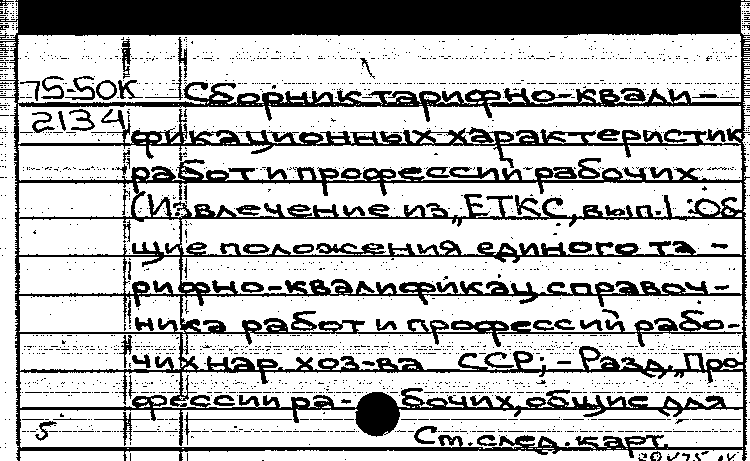 75-50К Сборник тарифно-квали-
2134 фикационных характеристик
работ и профессий рабочих.
(Извлечение из „ЕТКС, вып.1: Об-
щие положения единого та-
рифно-квалификац. справоч-
ника работ и профессий рабо-
чих нар. хоз-ва СССР; - Разд. „Про-
фессии ра- бочих, общие для
5 См. след. карт.